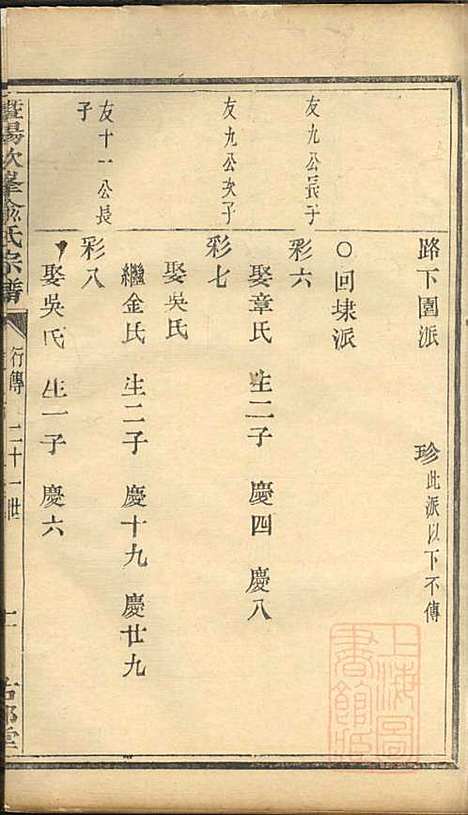 路下園派 珍此派以下不傳
○回埭派
友九公長子
彩六
娶章氏 生二子 慶四 慶八
友九公次子
彩七
娶吳氏
繼金氏 生二子 慶十九 慶廿九
友十一公長子
彩八
娶吳氏 生一子 慶六
暨陽次峯俞氏宗譜 行傳 二十一世
上海圖書館藏